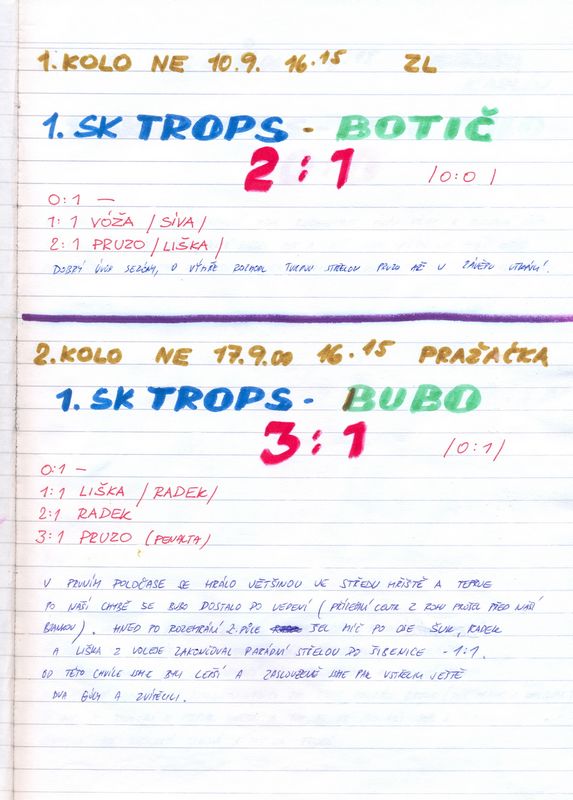 1. KOLO NE 10.9. 16.15 ZL
1. SK TROPS - BOTIČ
2:1 /0:0/
0:1 —
1:1 VÓŽA /SÍVA/
2:1 PRUZO /LIŠKA/
DOBRÝ ÚVOD SEZÓNY, O VÝHŘE ROZHODL STŘELOU PRUZO AŽ V ZÁVĚRU UTKÁNÍ.
2. KOLO NE 17.9.00 16.15 PRAŽAČKA
1. SK TROPS - BUBO
3:1 /0:1/
0:1 —
1:1 LIŠKA /RADEK/
2:1 RADEK
3:1 PRUZO (PENALTA)
V PRVNÍM POLOČASE SE HRÁLO VĚTŠINOU VE STŘEDU HŘIŠTĚ A TEPRVE
PO NAŠÍ CHYBĚ SE BUBO DOSTALO DO VEDENÍ ( CENTR Z ROHU PROŠEL PŘED NAŠÍ
). HNED PO ROZEHRÁNÍ 2. PŮLE ŠEL MÍČ PO OSE ŠUK, RADEK
A LIŠKA Z VOLEJE ZAKONČOVAL PARÁDNÍ STŘELOU DO ŠIBENICE - 1:1.
OD TÉTO CHVÍLE JSME BYLI LEPŠÍ A ZASLOUŽENĚ JSME PAK VSTŘELILI JEŠTĚ
DVA GÓLY A ZVÍTĚZILI.